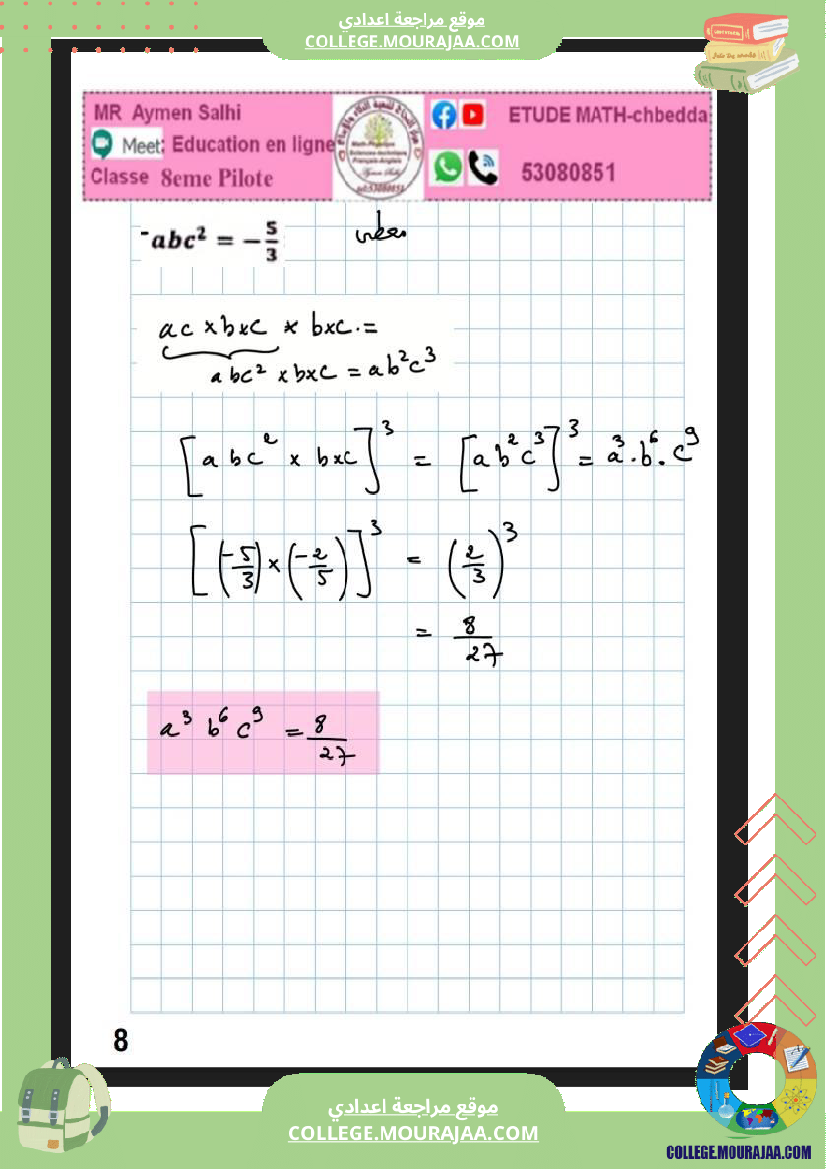 موقع مراجعة اعدادي
COLLEGE.MOURAJAA.COM
MR Aymen Salhi
Meet: Education en ligne
Classe 8eme Pilote
ETUDE MATH-chbedda
53080851
-abc² = -5/3 معطى
ac × b×c × b×c . =
abc² × b×c = ab²c³
[abc² × b×c]³ = [ab²c³]³ = a³ . b⁶ . c⁹
[(-5/3) × (-2/5)]³ = (2/3)³
= 8/27
a³ b⁶ c⁹ = 8/27
8
موقع مراجعة اعدادي
COLLEGE.MOURAJAA.COM
COLLEGE.MOURAJAA.COM